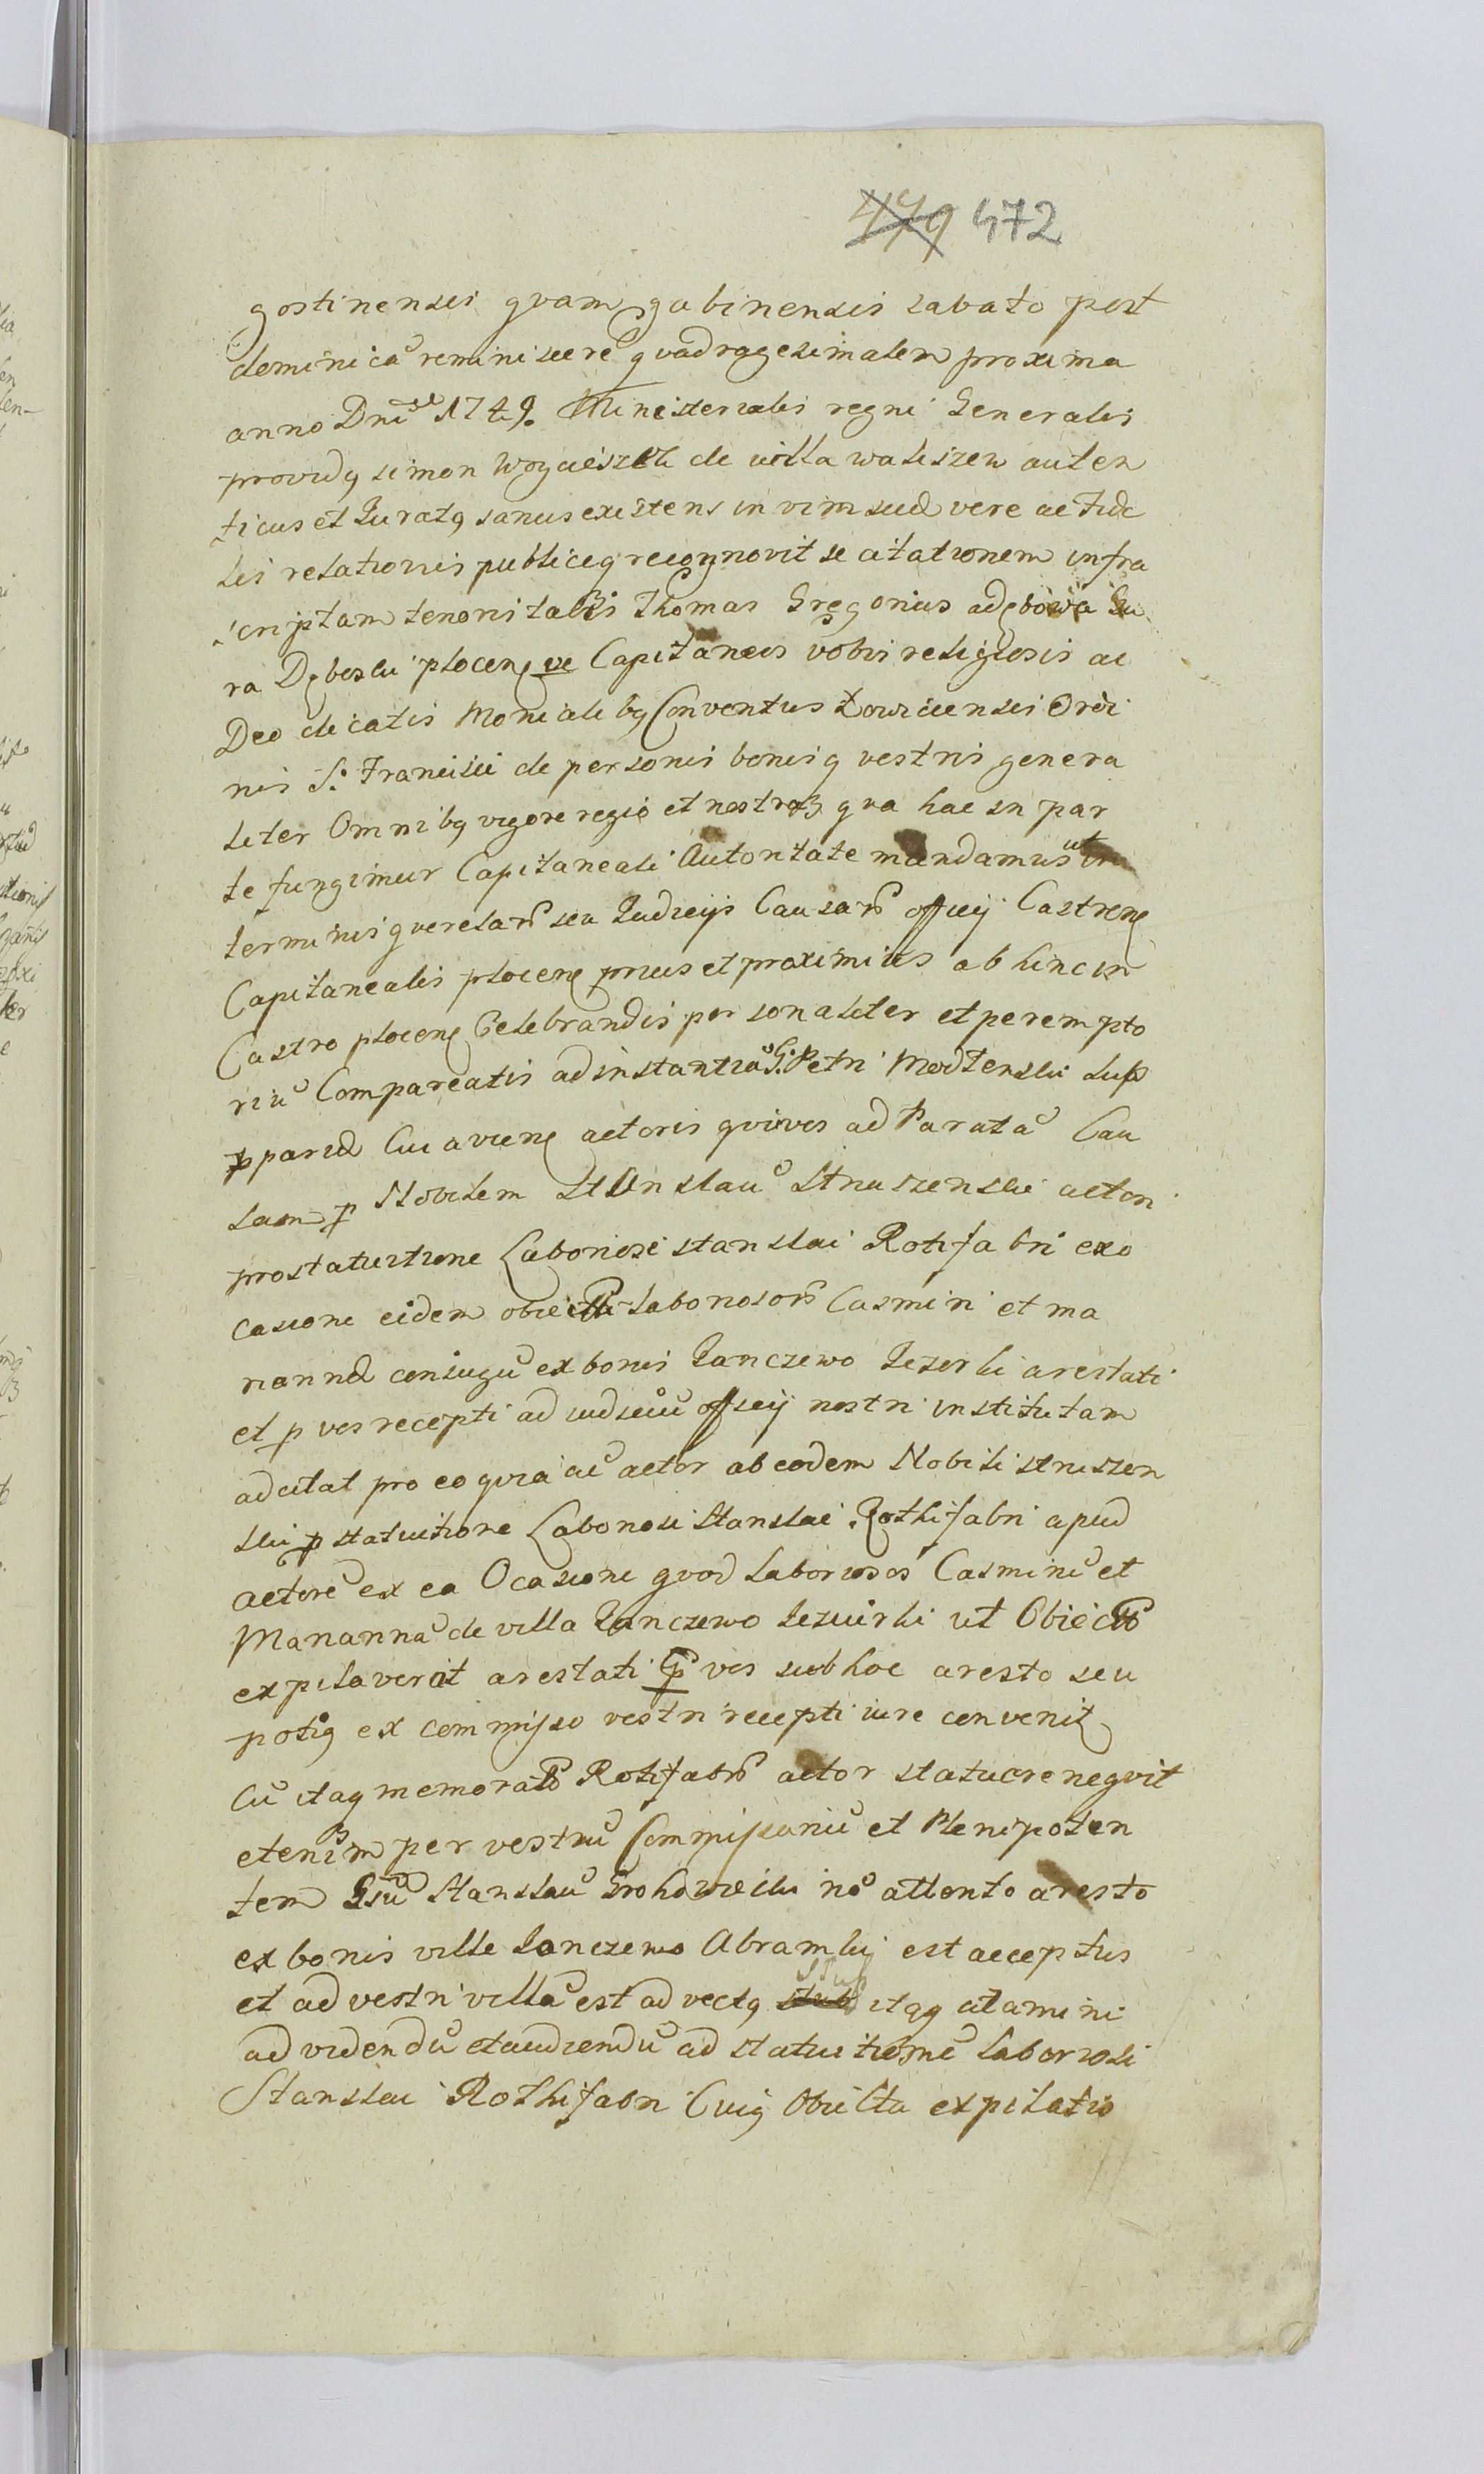 479 472
gostinensis qvam gabinensis sabato post
dominicā reminiscere qvadragesimalem proxima
anno Dni 1749. Ministerialis regni Generalis
providꝯ simon Woycieszek de villa waliszew auten
ticus et Juratꝯ sanus existens in vim suæ vere ac fide
lis relationis publiceqꝫ recognovit se citationem infra
scriptam tenoris talis Thomas Gregorius a dębowa Gu
ra Dębski plocenę ve Capitaneus vobis religiosis ac
Deo dicatis Monialebꝯ Conventus Łowicensis Ordi
nis S. Francisci de personis bonisqꝫ vestris genera
liter Omnibꝯ vigore regio et nostra qva hac in par
te fungimur Capitaneali Autoritate mandamus ut
terminis qverelarū seu Judicijs Causarū officij Castrenę
Capitanealis plocenę prius et proximius ab hinc in
Castro plocenę Celebrandis personaliter et perempto
riū Compareatis ad instantiā G. Petri Modlenski
pparid Cuiavienę actoris qvi vos ad Paratā Cau
sam p Nobilem Stanslaū Struszenski actori
pro statuitione Laboriosi stanslai Rotifabri exo
casione eidem obiecta laboriosorū Casmiri et ma
riannæ coniugū ex bonis Janczewo Jezerki arestati
et p vos recepti ad iudiciū officij nostri institutam
adcitat pro eo qvia ac actor ab eodem Nobili struszen
ski p statuitione Laboriosi Stanslai Rothifabri apud
actorē ex ea Ocasione qvod laboriosos Casmirū et
Mariannā de villa Janczewo ut Obiectū
expilaverit arestati p vos sub hoc aresto seu
potiꝯ ex commisso vestri recepti iure convenit
Cū itaqꝫ memoratū Rotifabrū actor statuere neqvit
etenim per vestrū Commissariū et Plenipoten
tem Gsū Stanslaū Grohowicki nō attento aresto
ex bonis ville Janczewo Abramky est acceptus
et ad vestri villā est advectꝯ itaqꝫ citamini
ad videndū et audiendū ad statuitionē laboriosi
Stanslai Rothifabri Cuiꝯ Obiecta expilatio